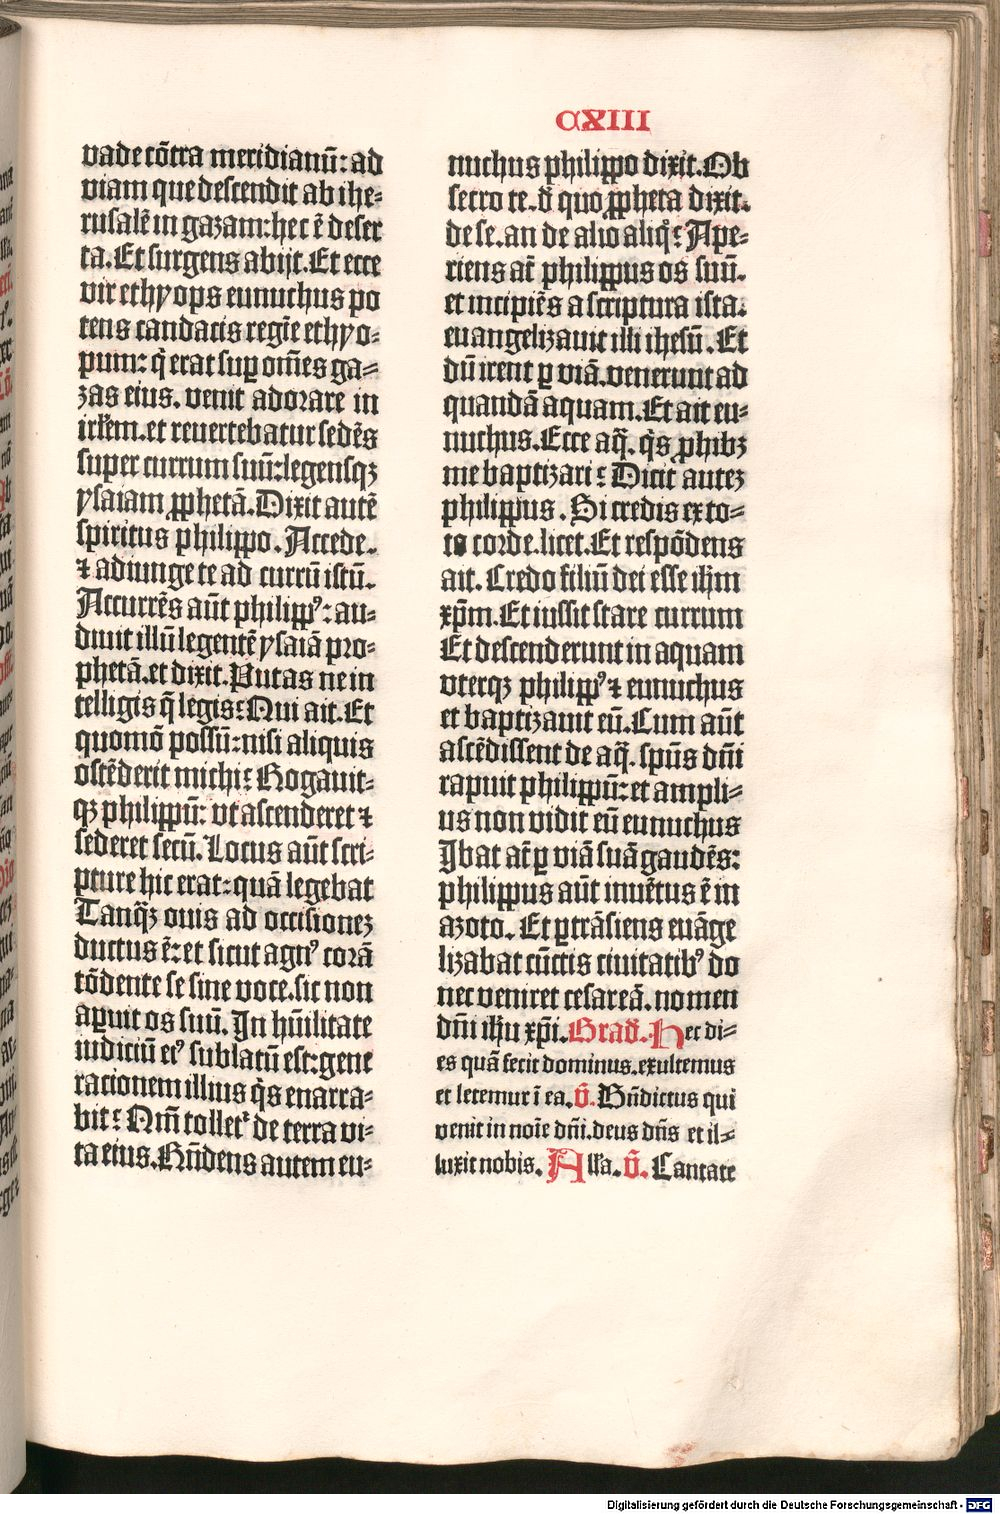 CXIII
vade cõtra meridianũ: ad
viam que descendit ab ihe-
rusalẽ in gazam: hec ẽ deser
ta. Et surgens abijt. Et ecce
vir ethyops eunuchus po
tens candacis regĩe ethyo-
pum: q̃ erat sup om̃es ga-
zas eius. venit adorare in
irlm̃. et revertebatur sedẽs
super currum suũ: legensqꝫ
ysaiam ꝓphetã. Dixit autẽ
spiritus philippo. Accede.
⁊ adiunge te ad currũ istũ.
Accurrẽs aũt philippꝰ: au-
diuit illũ legentẽ ysaiã pro-
phetã. et dixit. Putas ne in
telligis q̃ legis? Qui ait. Et
quomõ possũ: nisi aliquis
ostẽderit michi? Rogauit-
qꝫ philippũ: vt ascenderet ⁊
sederet secũ. Locus aũt scri-
pture hic erat: quã legebat
Tanq̃ꝫ ouis ad occisionez
ductus ẽ: et sicut agnꝰ corã
tõdente se sine voce. sic non
aꝑuit os suũ. In hũilitate
iudiciũ eiꝰ sublatũ est: gene
racionem illius q̃s enarra-
bit? Qm̃ tolletᷣ de terra vi-
ta eius. Rñdens autem eu-
nuchus philippo dixit. Ob
secro te. đ quo ꝓpheta dixit.
de se. an de alio aliq̃? Ape-
riens at̃ philippus os suũ.
et incipiẽs a scriptura ista:
euangelizauit illi ihesũ. Et
dũ irent ꝑ viã. venerunt ad
quandã aquam. Et ait eu-
nuchus. Ecce aq̃. q̃s ꝓhibꝫ
me baptizari? Dicit autez
philippus. Si credis ex to-
to corde. licet. Et respõdens
ait. Credo filiũ dei esse ihm̃
xp̃m. Et iussit stare currum
Et descenderunt in aquam
vterqꝫ philippꝰ ⁊ eunuchus
et baptizauit eũ. Cum aũt
ascẽdissent de aq̃. spũs dñi
rapuit philippũ: et ampli-
us non vidit eũ eunuchus
Ibat at̃ ꝑ viã suã gaudẽs:
philippus aũt inuẽtus ẽ in
azoto. Et ꝑtrãsiens euãge
lizabat cũctis ciuitatibꝰ do
nec veniret cesareã. nomen
dñi ihũ xp̃i. Građ. Hec di-
es quã fecit dominus. exultemus
et letemur ĩ ea. v̄. Bñdictus qui
venit in noĩe dñi. deus dñs et il-
luxit nobis. Alla. v̄. Cantate
Digitalisierung gefördert durch die Deutsche Forschungsgemeinschaft - DFG